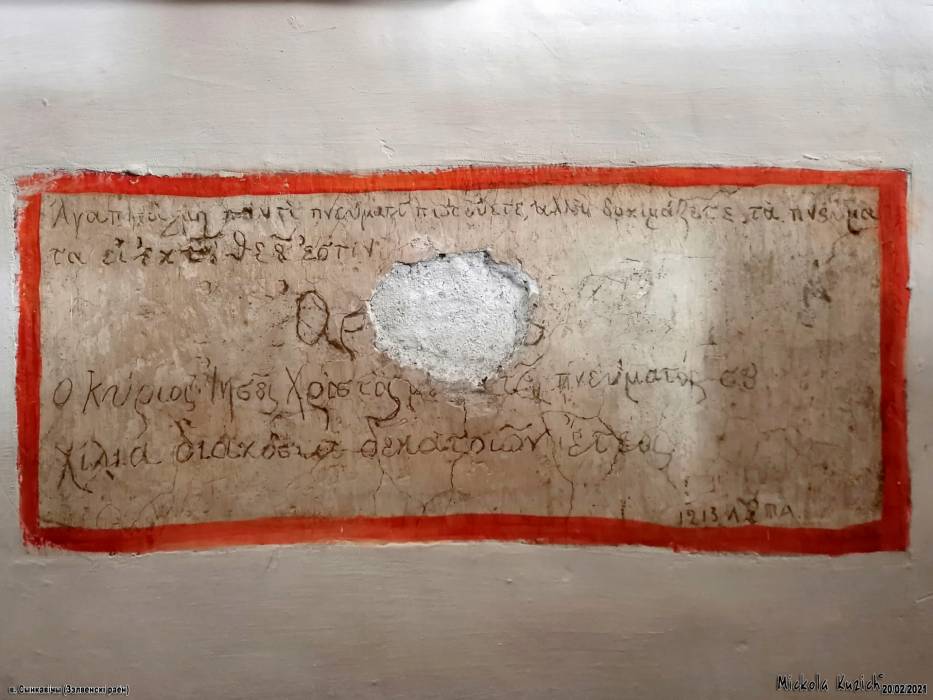 Ἀγαπητοὶ, μὴ παντὶ πνεύματι πιστεύετε, ἀλλὰ δοκιμάζετε τὰ πνεύμα
τα εἰ ἐκ τοῦ θεοῦ ἐστίν
Ο Κύριος Ἰησοῦς Χριστὸς τοῦ πνεύματός σου
χίλια διακόσια δεκατριῶν ἔτεος
1213
в. Сынкавічы (Зэльвенскі раён)
Mickola Kuzich © 20/02/2021